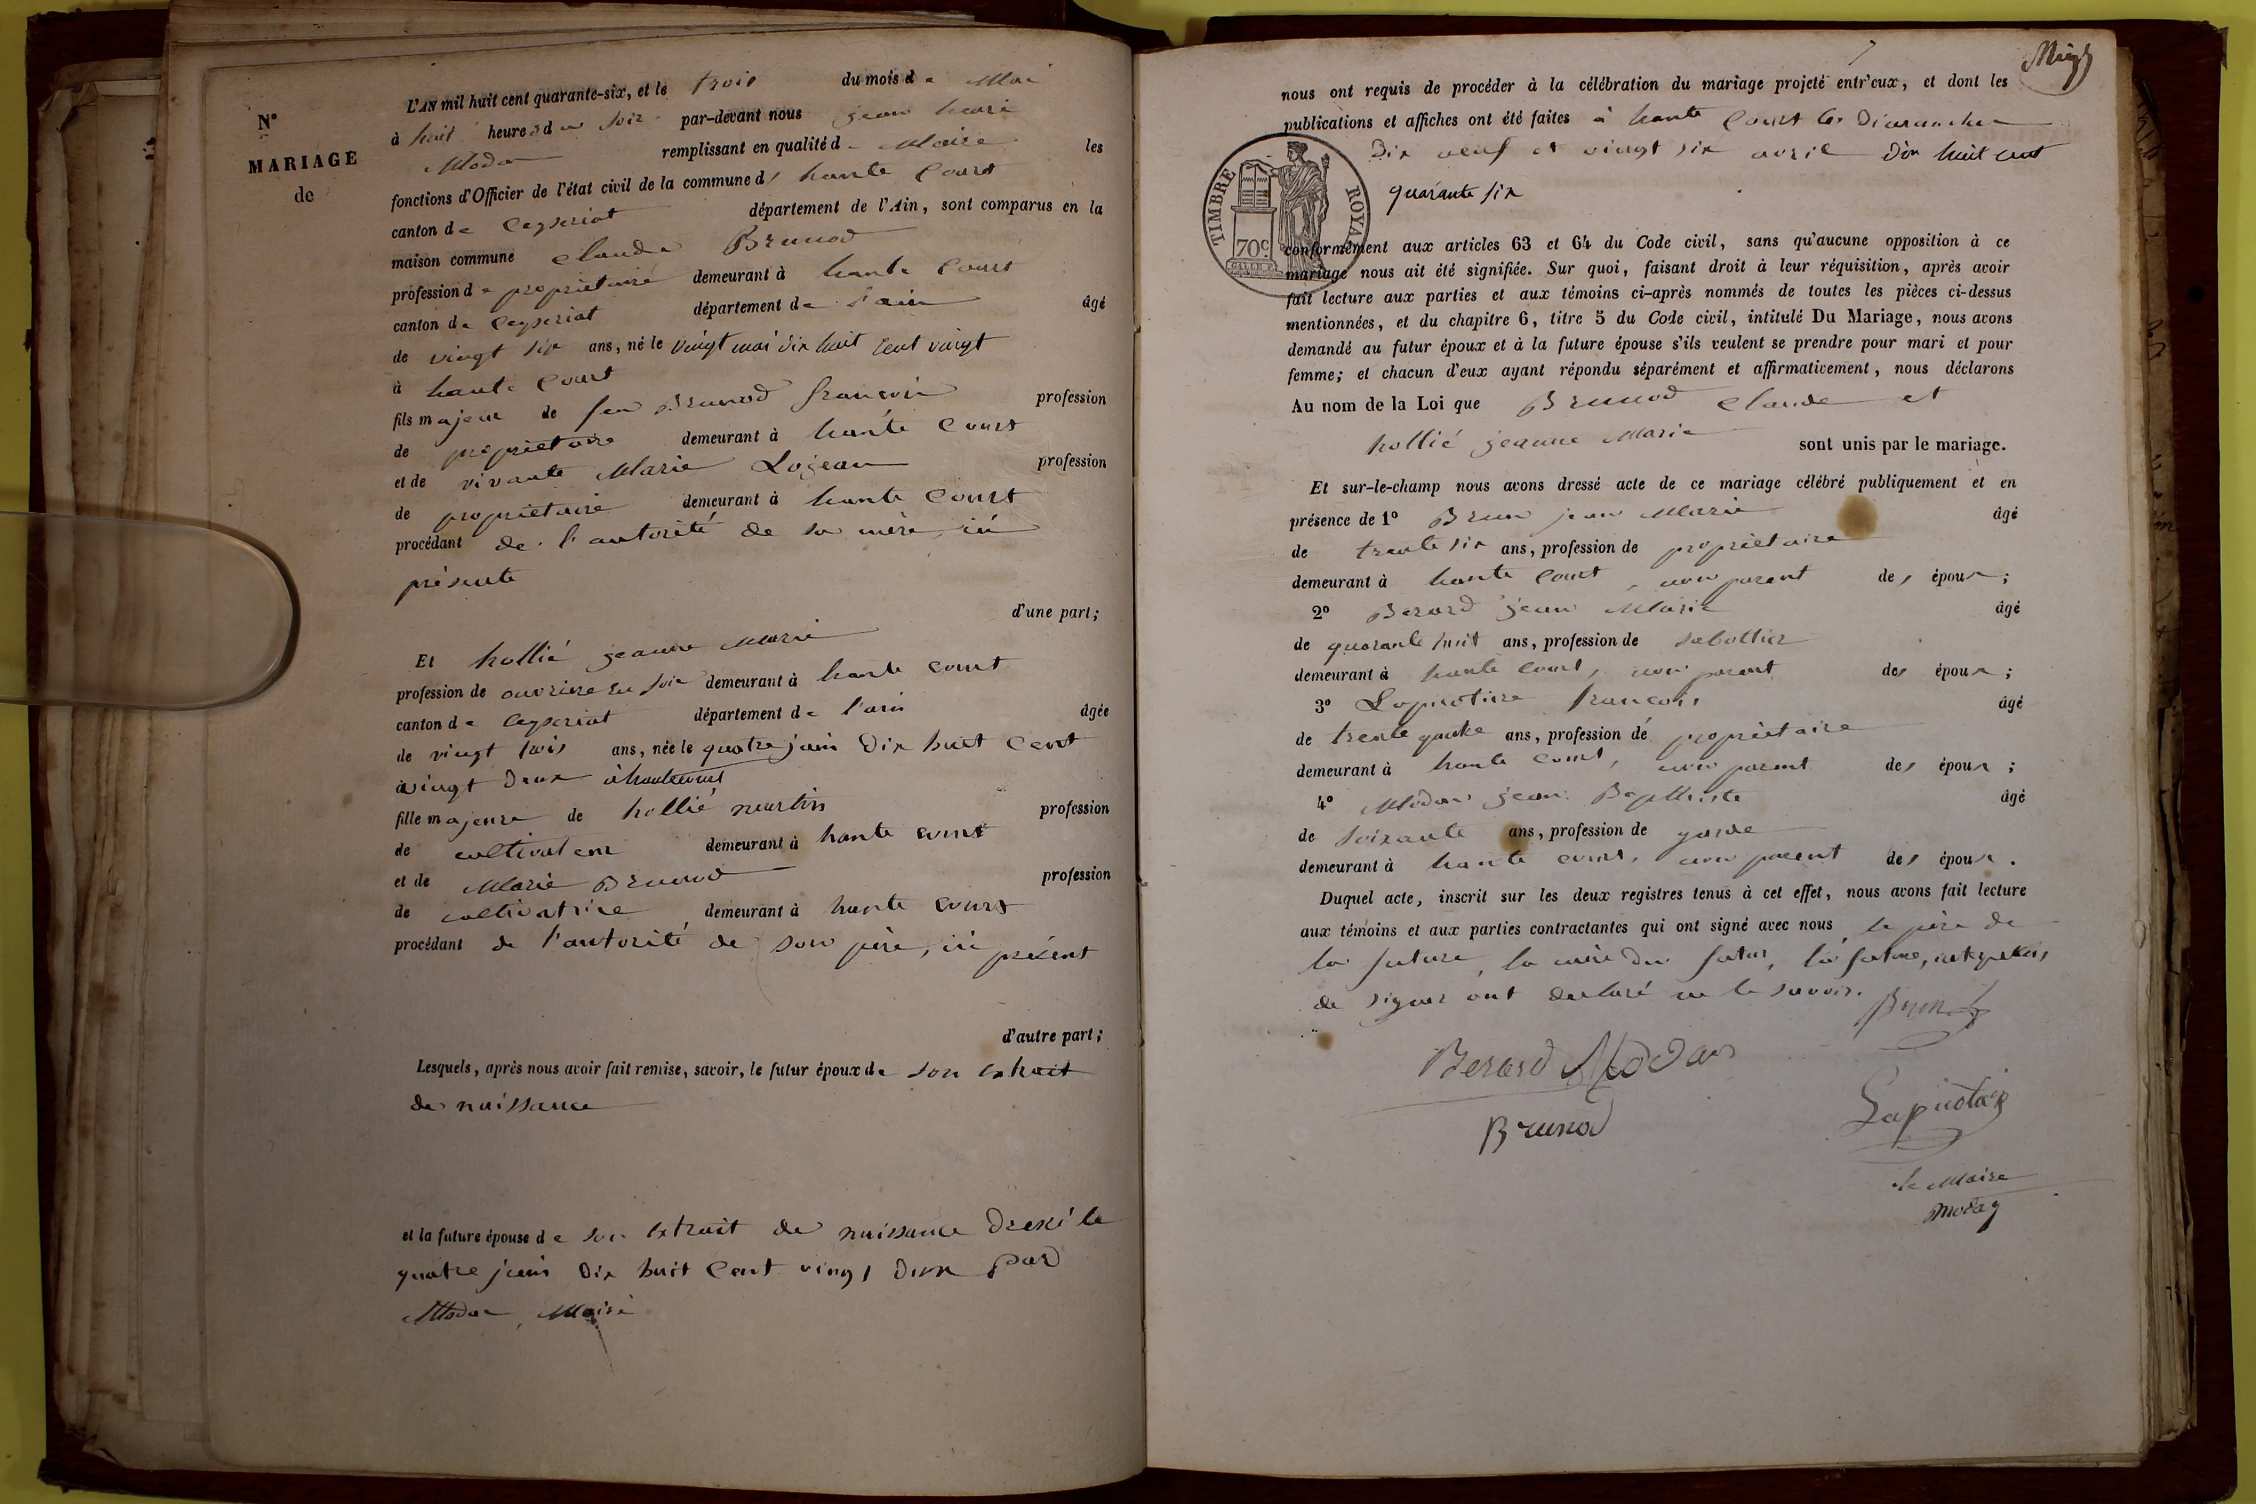 N°
MARIAGE
de
L'AN mil huit cent quarante-six, et le trois du mois de Mai
à huit heures du soir par-devant nous jean henri
Modas remplissant en qualité de Maire les
fonctions d'Officier de l'état civil de la commune d haute Court
canton de Ceyseriat département de l'Ain, sont comparus en la
maison commune claude Brunod
profession de proprietaire demeurant à haute Court
canton de Ceyseriat département de l'ain âgé
de vingt six ans, né le vingt mai dix huit cent vingt
à haute Court
fils majeur de feu Brunod françois profession
de proprietaire demeurant à haute Court
et de vivante Marie Lojean profession
de proprietaire demeurant à haute Court
procédant de l'autorité de sa mère, ici
présente
d'une part;
Et hollié jeanne Marie
profession de ouvriere en soie demeurant à haute court
canton de Ceyseriat département de l'ain âgée
de vingt trois ans, née le quatre juin dix huit cent
à vingt deux à hautecourt
fille majeure de hollié martin profession
de cultivateur demeurant à haute court
et de Marie Brunod profession
de cultivatrice demeurant à haute court
procédant de l'autorité de son père, ici présent
d'autre part;
Lesquels, après nous avoir fait remise, savoir, le futur époux de son extrait
de naissance
et la future épouse de son extrait de naissance Dressé le
quatre juin dix huit Cent vingt deux par
Modas, Maire
nous ont requis de procéder à la célébration du mariage projeté entr'eux, et dont les
publications et affiches ont été faites à haute Court les dimanches
dix neuf et vingt six avril dix huit cent
quarante six
TIMBRE ROYAL
70c
conformément aux articles 63 et 64 du Code civil, sans qu'aucune opposition à ce
mariage nous ait été signifiée. Sur quoi, faisant droit à leur réquisition, après avoir
fait lecture aux parties et aux témoins ci-après nommés de toutes les pièces ci-dessus
mentionnées, et du chapitre 6, titre 5 du Code civil, intitulé Du Mariage, nous avons
demandé au futur époux et à la future épouse s'ils veulent se prendre pour mari et pour
femme; et chacun d'eux ayant répondu séparément et affirmativement, nous déclarons
Au nom de la Loi que Brunod claude et
hollié jeanne Marie sont unis par le mariage.
Et sur-le-champ nous avons dressé acte de ce mariage célébré publiquement et en
présence de 1° Brun jean Marie âgé
de trente six ans, profession de proprietaire
demeurant à haute Court, non parent des époux;
2° Berard jean Marie âgé
de quarante huit ans, profession de sabottier
demeurant à haute Court, non parent des époux;
3° Lapiotire françois âgé
de trente quatre ans, profession de proprietaire
demeurant à haute Court, non parent des époux;
4° Modas jean Baptiste âgé
de soixante ans, profession de garde
demeurant à haute court, non parent des époux.
Duquel acte, inscrit sur les deux registres tenus à cet effet, nous avons fait lecture
aux témoins et aux parties contractantes qui ont signé avec nous, le père de
la future, la mère du futur, la future, interpellés
de signer ont declaré ne le savoir. Brun
Berard Modas
Brunod
le Maire
Modas